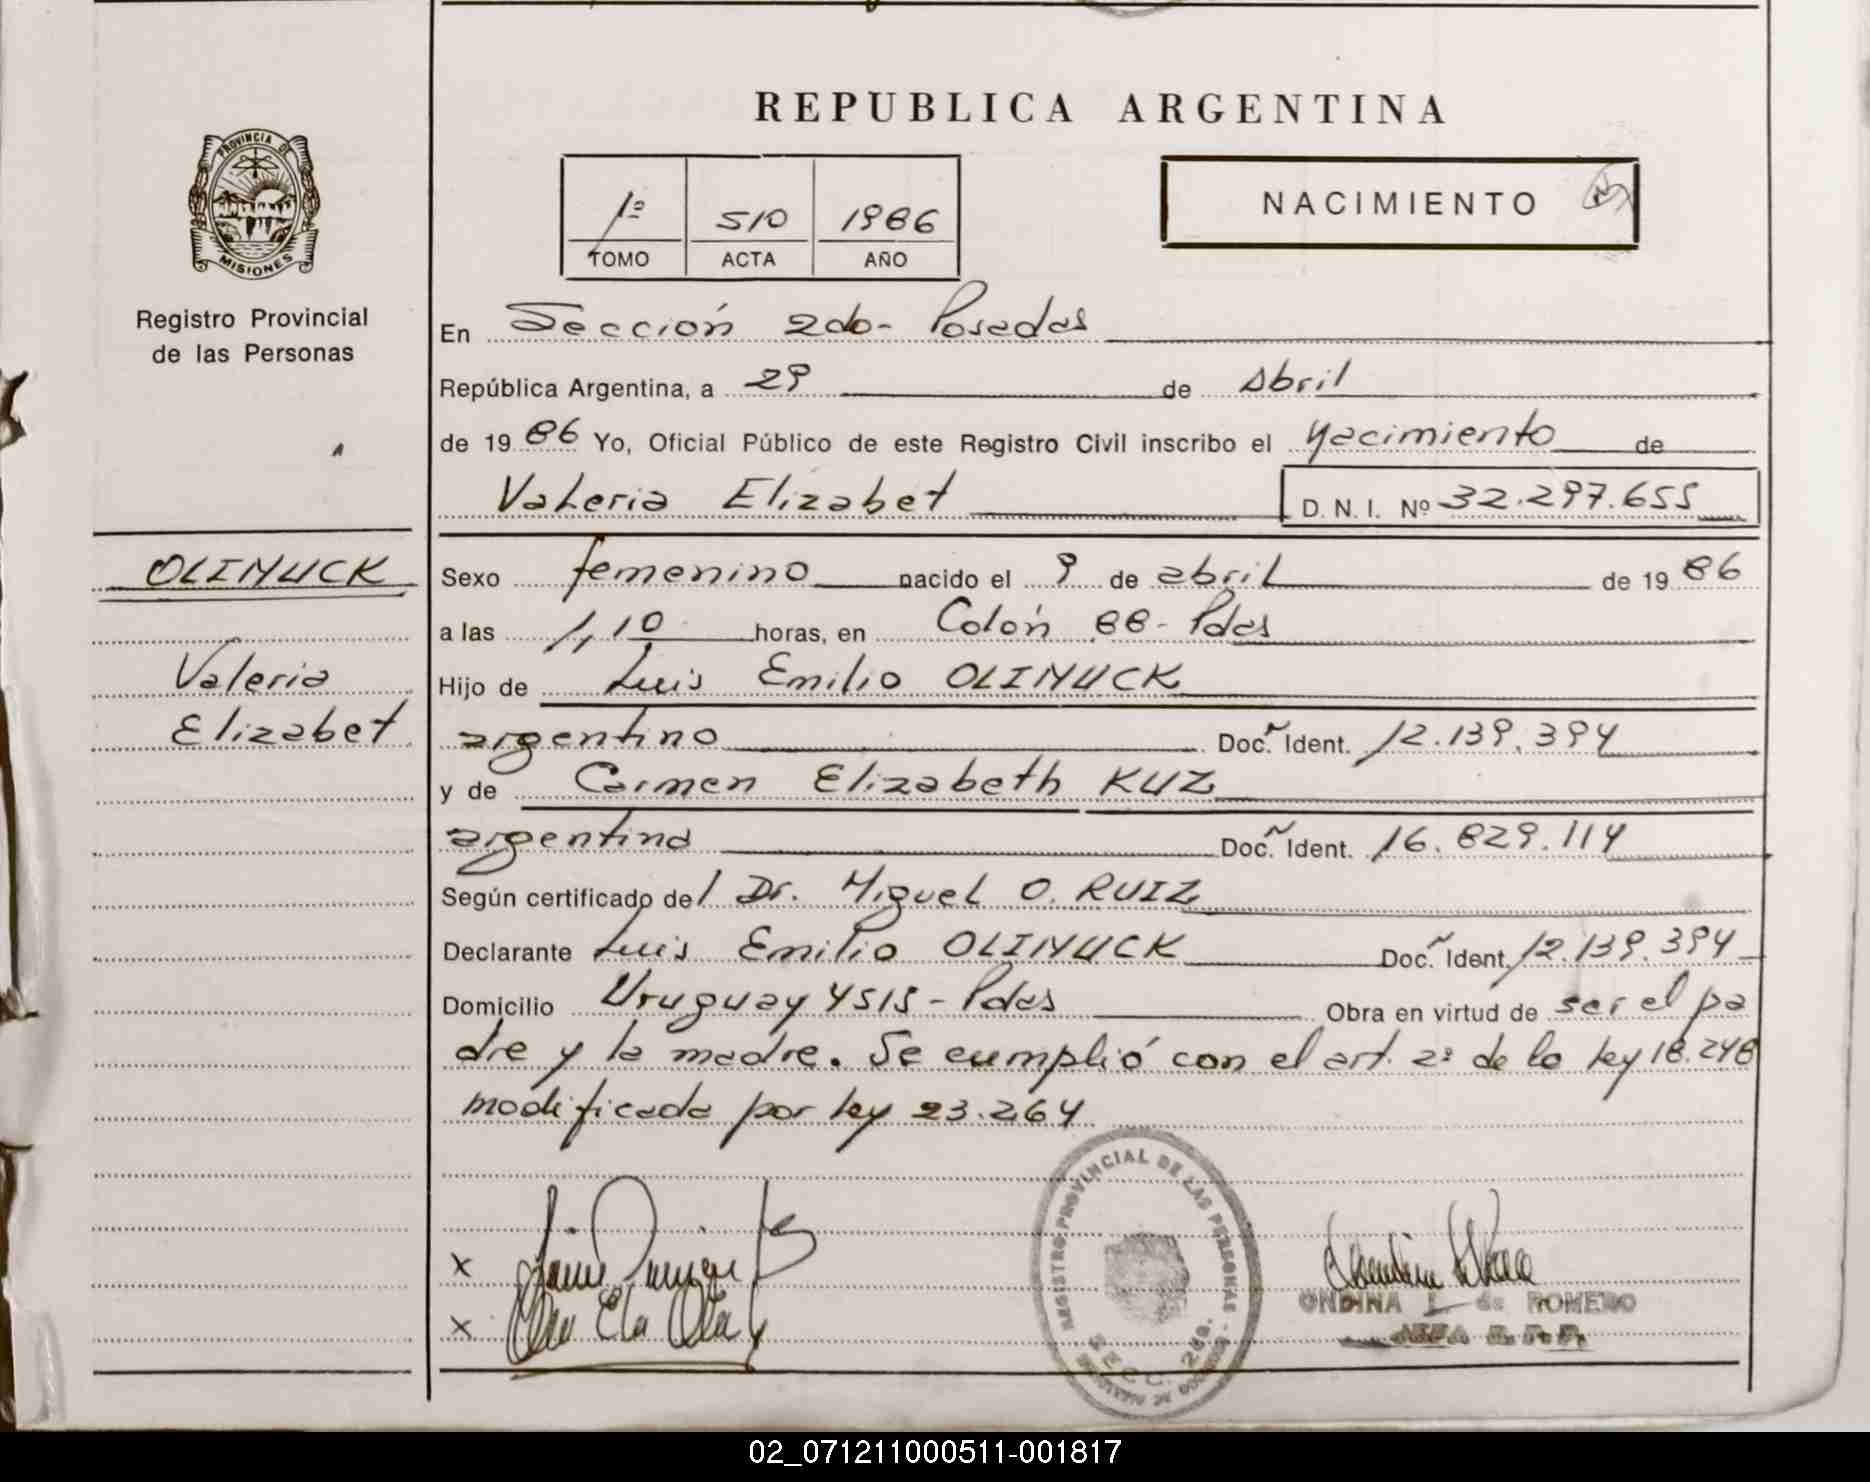 REPUBLICA ARGENTINA
PROVINCIA DE
MISIONES
Registro Provincial
de las Personas
1º 510 1986
TOMO ACTA AÑO
NACIMIENTO
En Sección 2do- Posadas
República Argentina, a 29 de Abril
de 1986 Yo, Oficial Público de este Registro Civil inscribo el Nacimiento de
Valeria Elizabet D. N. I. Nº 32.297.655
OLINUCK
Valeria
Elizabet
Sexo femenino nacido el 9 de abril de 1986
a las 1,10 horas, en Colón 88- Pdas
Hijo de Luis Emilio OLINUCK
argentino Doc. Ident. 12.139.394
y de Carmen Elizabeth KUZ
argentina Doc. Ident. 16.829.114
Según certificado del Dr. Miguel O. RUIZ
Declarante Luis Emilio OLINUCK Doc. Ident. 12.139.394
Domicilio Uruguay 4515 - Pdas Obra en virtud de ser el pa
dre y la madre. Se cumplió con el art. 2º de la ley 18.248
modificada por ley 23.264
x
x
REGISTRO PROVINCIAL DE LAS PERSONAS
SECC. 2da.
ONDINA L. de ROMERO
02_071211000511-001817